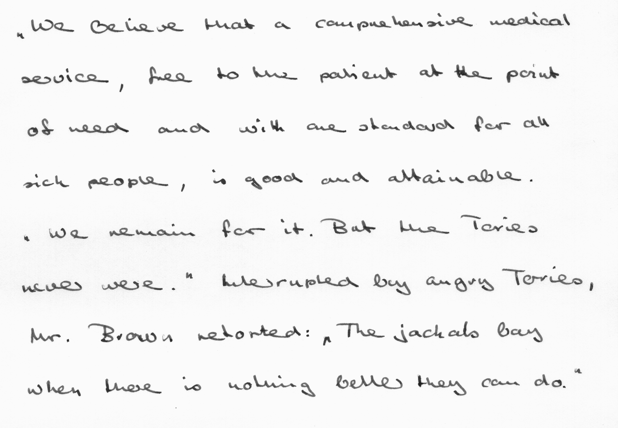 „We believe that a comprehensive medical
service, free to the patient at the point
of need and with one standard for all
sick people, is good and attainable.
„ We remain for it. But the Tories
never were." Interrupted by angry Tories,
Mr. Brown retorted: „The jackals bay
when there is nothing better they can do."